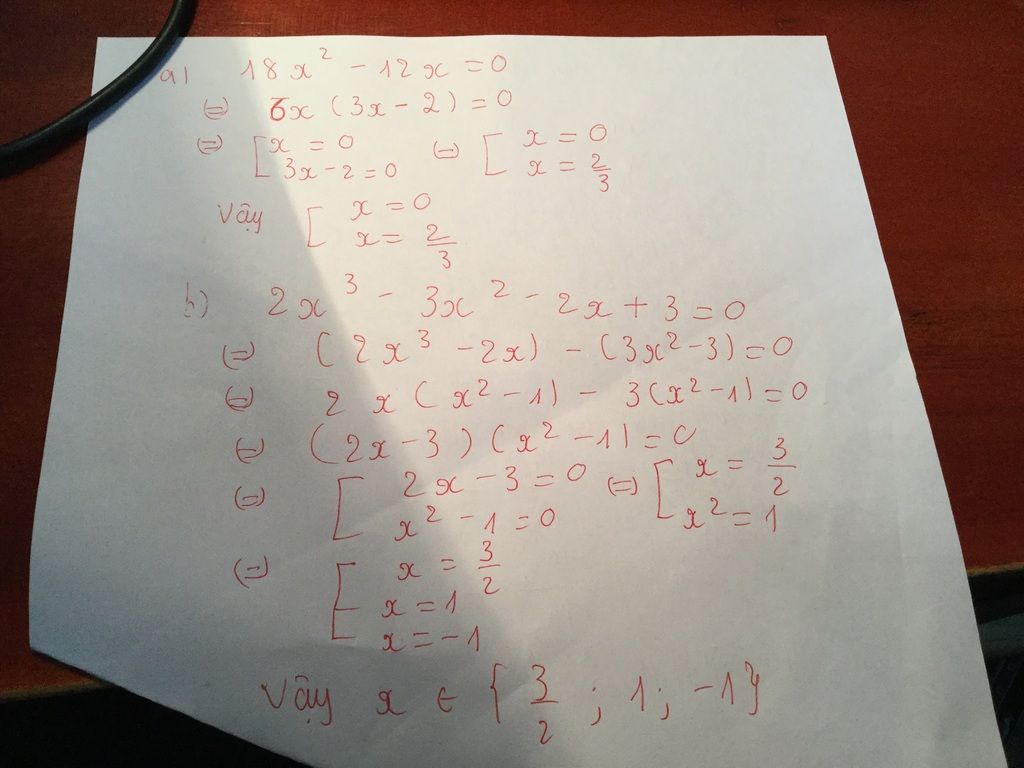 a) 18x² - 12x = 0
(=) 6x (3x - 2) = 0
(=) [ x = 0 (=) [ x = 0
3x - 2 = 0 x = 2/3
Vậy [ x = 0
x = 2/3
b) 2x³ - 3x² - 2x + 3 = 0
(=) (2x³ - 2x) - (3x² - 3) = 0
(=) 2x (x² - 1) - 3(x² - 1) = 0
(=) (2x - 3) (x² - 1) = 0
(=) [ 2x - 3 = 0 (=) [ x = 3/2
x² - 1 = 0 x² = 1
(=) [ x = 3/2
x = 1
x = -1
Vậy x ∈ { 3/2 ; 1 ; -1 }